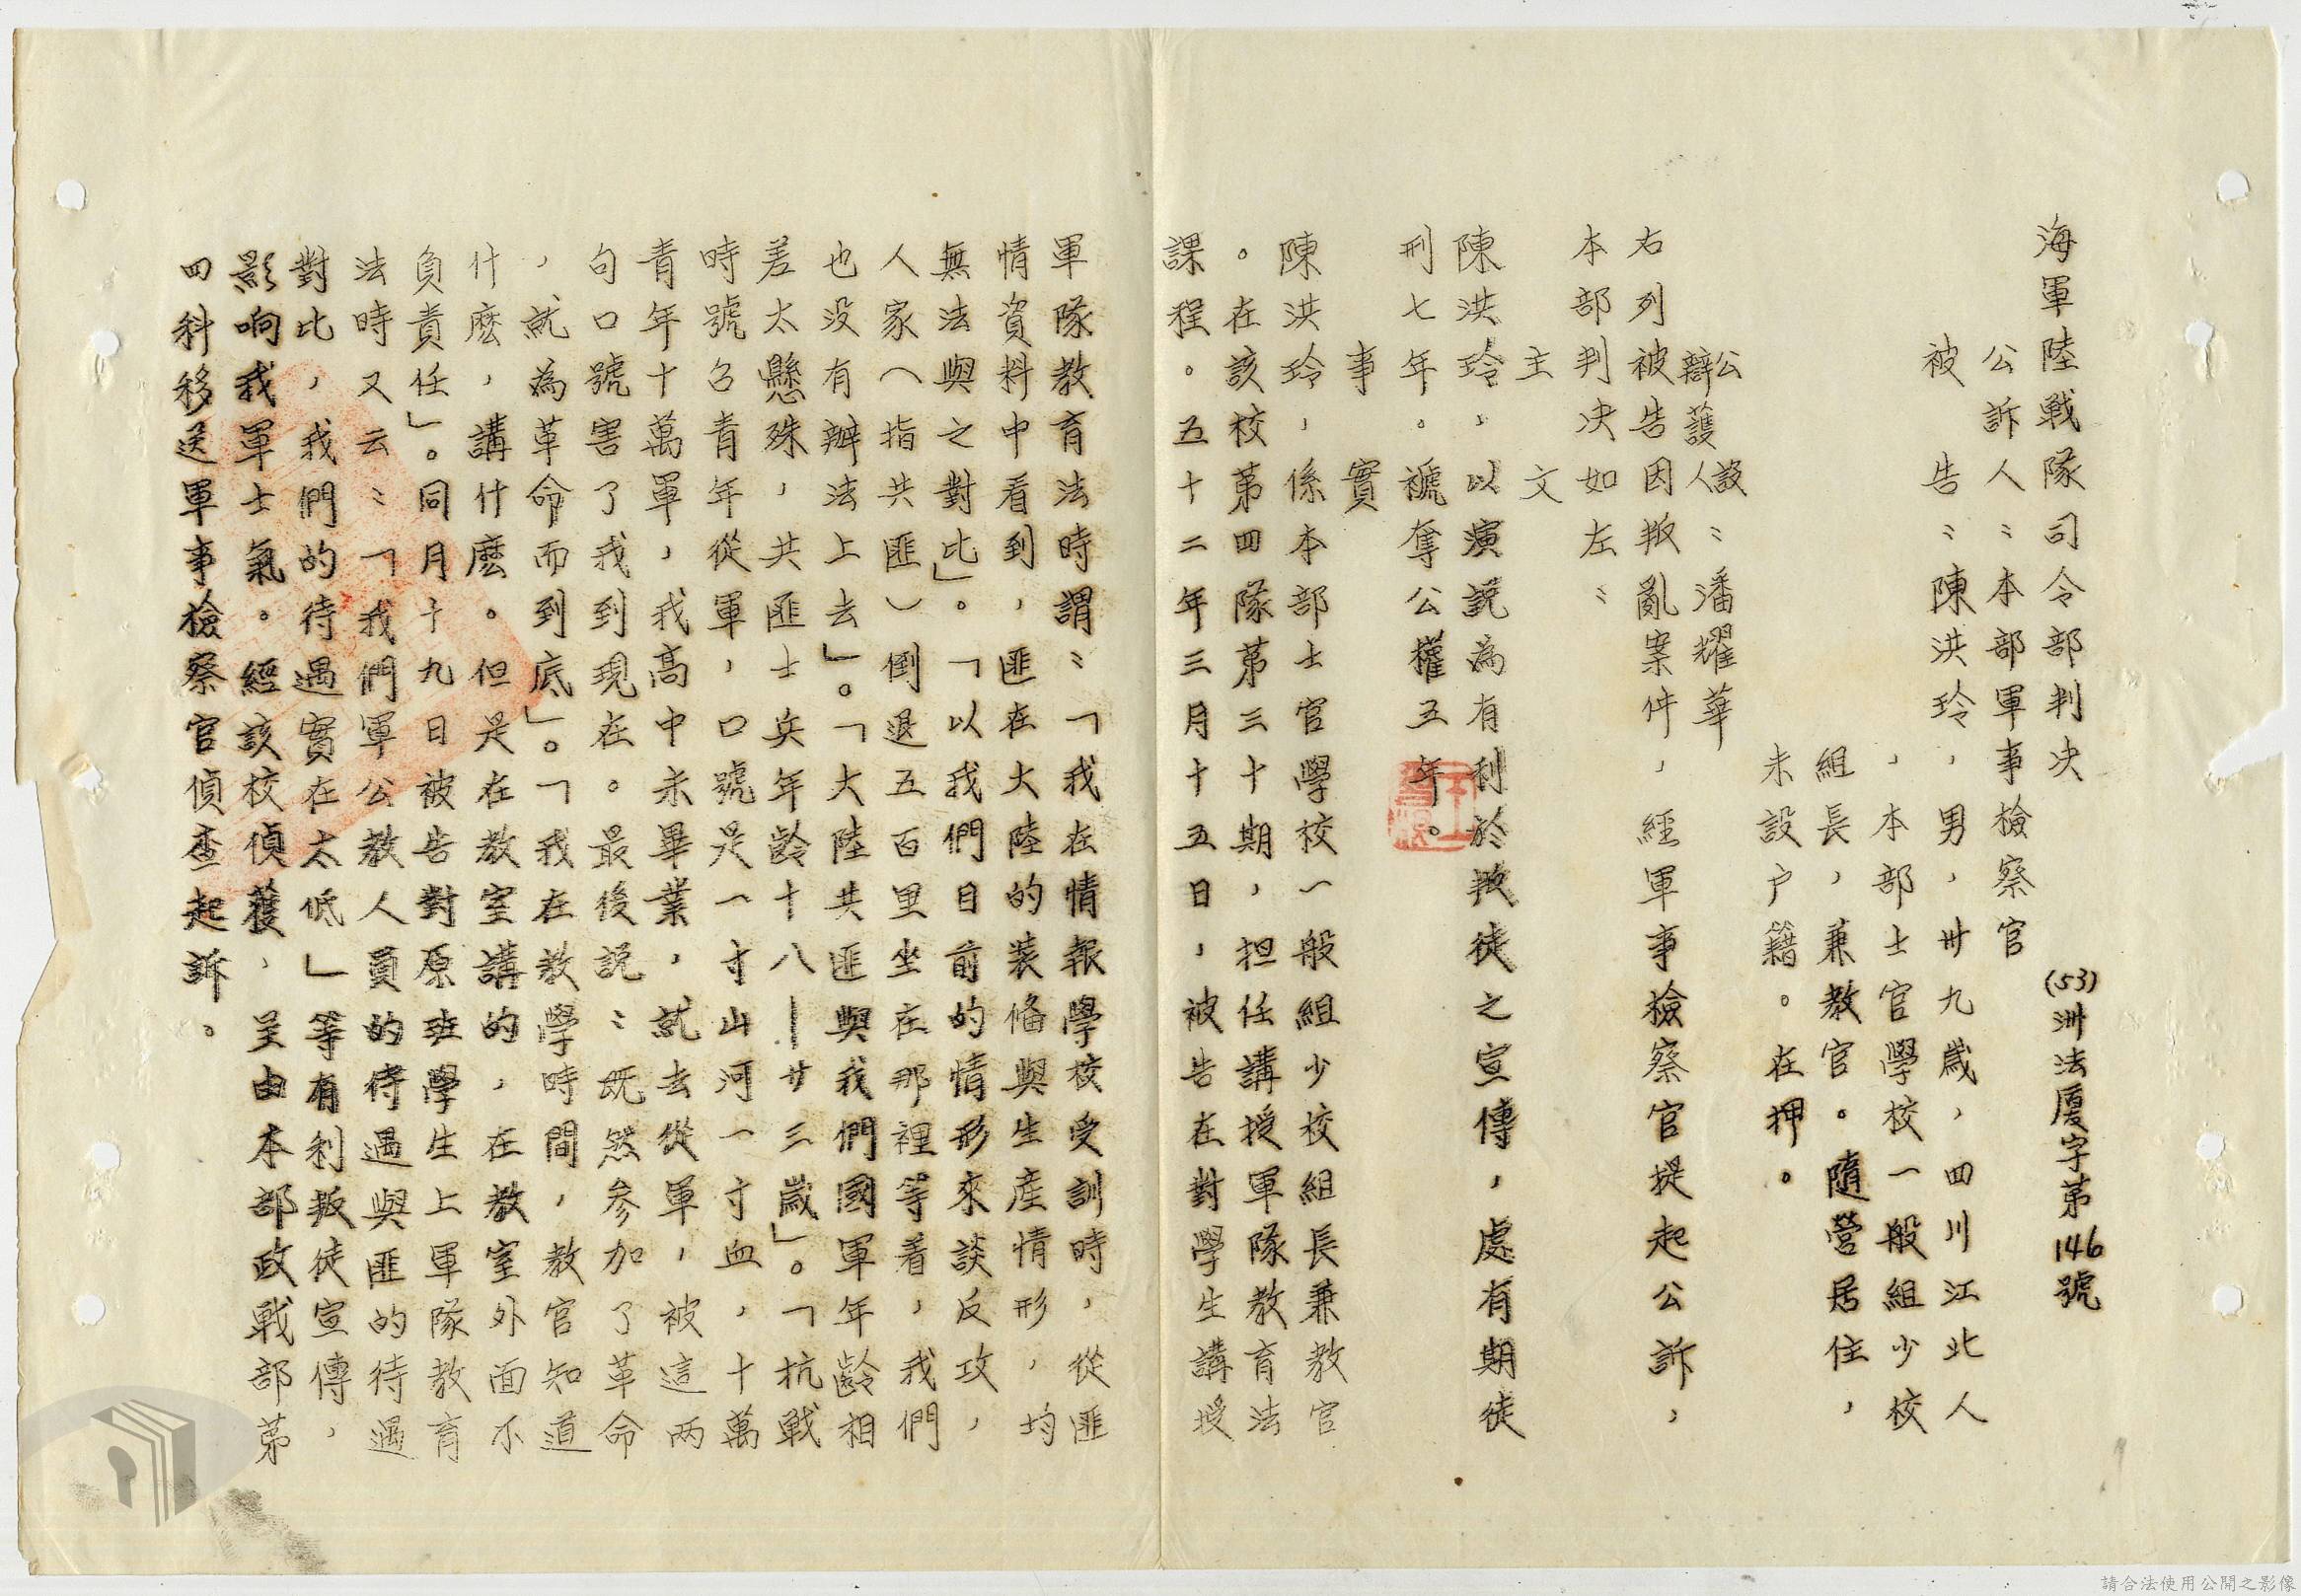 海軍陸戰隊司令部判决
(53)洲法厦字第146號
公訴人：本部軍事檢察官
被告：陳洪玲，男，卅九歲，四川江北人
，本部士官學校一般組少校
組長，兼教官。隨營居住，
未設户籍。在押。
公設
辯護人：潘耀華
右列被告因叛亂案件，經軍事檢察官提起公訴，
本部判决如左：
主文
陳洪玲，以演説為有利於叛徒之宣傳，處有期徒
刑七年。褫奪公權五年。
事實
陳洪玲，係本部士官學校一般組少校組長兼教官
。在該校第四隊第三十期，担任講授軍隊教育法
課程。五十二年三月十五日，被告在對學生講授
軍隊教育法時謂：「我在情報學校受訓時，從匪
情資料中看到，匪在大陸的裝俻與生産情形，均
無法與之對比」。「以我們目前的情形來談反攻，
人家（指共匪）倒退五百里坐在那裡等着，我們
也没有辦法上去」。「大陸共匪與我們國軍年齡相
差太懸殊，共匪士兵年齡十八—廿三歲」。「抗戰
時號召青年從軍，口號是一寸山河一寸血，十萬
青年十萬軍，我高中未畢業，就去從軍，被這两
句口號害了我到現在。最後説：既然参加了革命
，就為革命而到底」。「我在教學時間，教官知道
什麽，講什麽。但是在教室講的，在教室外面不
負責任」。同月十九日被告對原班學生上軍隊教育
法時又云：「我們軍公教人員的待遇與匪的待遇
對比，我們的待遇實在太低」等有利叛徒宣傳，
影响我軍士氣。經該校偵獲，呈由本部政戰部第
四科移送軍事檢察官偵查起訴。
請合法使用公開之影像